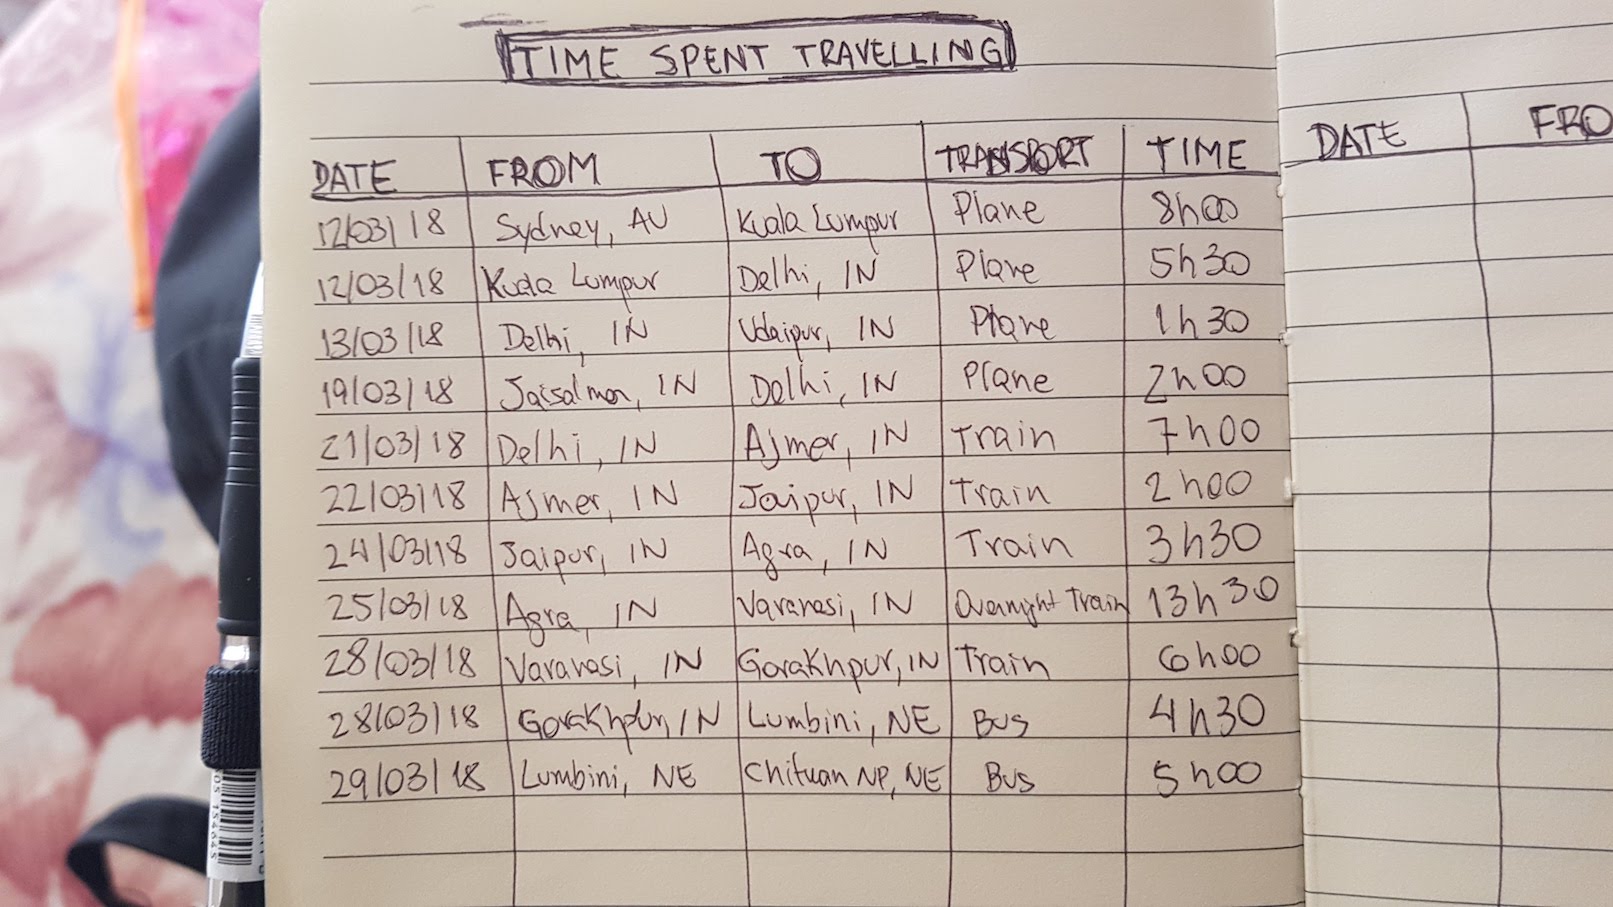 TIME SPENT TRAVELLING
DATE FROM TO TRANSPORT TIME
12/03/18 Sydney, AU Kuala Lumpur Plane 8h00
12/03/18 Kuala Lumpur Delhi, IN Plane 5h30
13/03/18 Delhi, IN Udaipur, IN Plane 1h30
19/03/18 Jaisalmer, IN Delhi, IN Plane 2h00
21/03/18 Delhi, IN Ajmer, IN Train 7h00
22/03/18 Ajmer, IN Jaipur, IN Train 2h00
24/03/18 Jaipur, IN Agra, IN Train 3h30
25/03/18 Agra, IN Varanasi, IN Overnight Train 13h30
28/03/18 Varanasi, IN Gorakhpur, IN Train 6h00
28/03/18 Gorakhpur, IN Lumbini, NE Bus 4h30
29/03/18 Lumbini, NE Chituan NP, NE Bus 5h00
DATE FRO